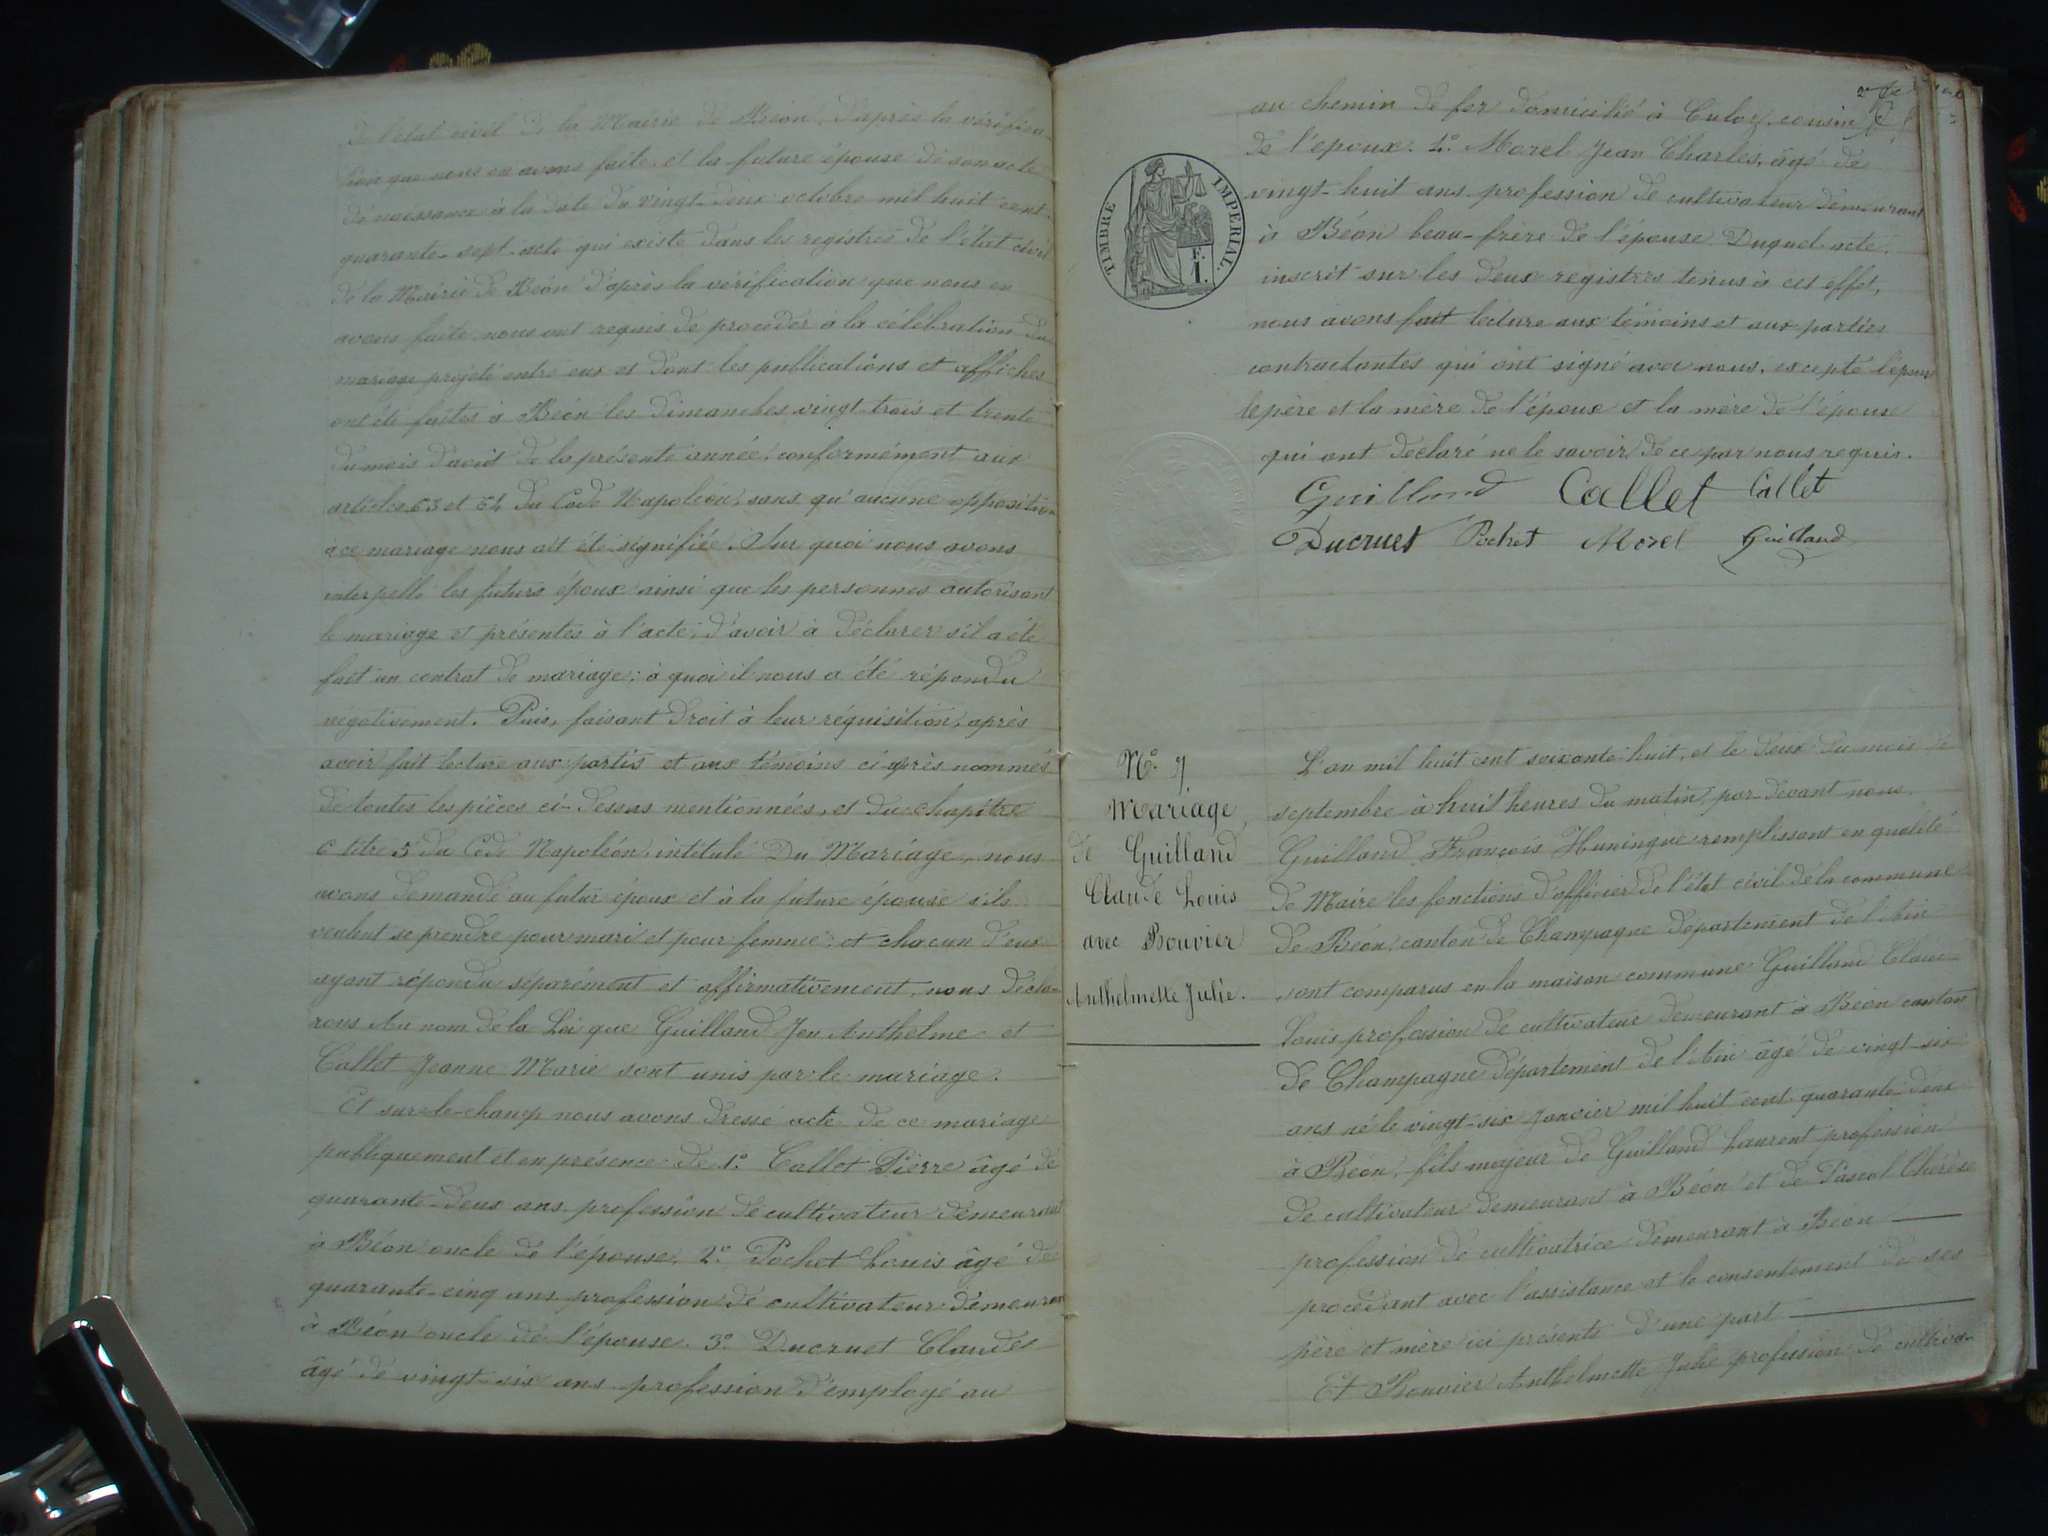 de l'état civil de la Mairie de Béon, d'après la vérifica-
tion que nous en avons faite, et la future épouse de son acte
de naissance à la date du vingt-deux octobre mil huit cent
quarante-sept acte qui existe dans les registres de l'état civil
de la Mairie de Béon d'après la vérification que nous en
avons faite, nous ont requis de procéder à la célébration du
mariage projeté entre eux et dont les publications et affiches
ont été faites à Béon les dimanches vingt-trois et trente
du mois d'août de la présente année, conformément aux
articles 63 et 64 du Code Napoléon, sans qu'aucune opposition
à ce mariage nous ait été signifiée. Sur quoi nous avons
interpellé les futurs époux ainsi que les personnes autorisant
le mariage et présentes à l'acte, d'avoir à déclarer s'il a été
fait un contrat de mariage; à quoi il nous a été répondu
négativement. Puis, faisant droit à leur réquisition, après
avoir fait lecture aux partis et aux témoins ci après nommés
de toutes les pièces ci-dessus mentionnées, et du chapitre
6 titre 5 du Code Napoléon, intitulé Du Mariage, nous
avons demandé au futur époux et à la future épouse s'ils
veulent se prendre pour mari et pour femme; et chacun d'eux
ayant répondu séparément et affirmativement, nous décla-
rons Au nom de la Loi que Guilland Jen Anthelme et
Callet Jeanne Marie sont unis par le mariage.
Et sur-le-champ nous avons dressé acte de ce mariage
publiquement et en présence de 1.° Callet Pierre âgé de
quarante-deux ans profession de cultivateur demeurant
à Béon oncle de l'épouse. 2.° Pochet Louis âgé de
quarante-cinq ans profession de cultivateur demeurant
à Béon oncle de l'épouse. 3.° Ducruet Claude
âgé de vingt-six ans profession d'employé au
au chemin de fer domicilié à Culoz, cousin
de l'époux. 4.° Morel Jean Charles, âgé de
vingt-huit ans profession de cultivateur demeurant
à Béon beau-frère de l'épouse. Duquel acte,
inscrit sur les deux registres tenus à cet effet,
nous avons fait lecture aux témoins et aux parties
contractantes qui ont signé avec nous, excepté l'époux
le père et la mère de l'époux et la mère de l'épouse
qui ont déclaré ne le savoir de ce par nous requis.
TIMBRE IMPERIAL.
F.
1.
Guilland Callet Callet
Ducruet Pochet Morel Guilland
N.° 7
Mariage
de Guilland
Claude Louis
avec Bouvier
Anthelmette Julie.
L'an mil huit cent soixante-huit, et le deux du mois de
septembre à huit heures du matin, par-devant nous
Guilland François Huningue remplissant en qualité
de Maire les fonctions d'officier de l'état civil de la commune
de Béon, canton de Champagne département de l'Ain
sont comparus en la maison commune Guilland Claude
Louis profession de cultivateur demeurant à Béon canton
de Champagne département de l'Ain âgé de vingt-six
ans né le vingt-six Janvier mil huit cent quarante-deux
à Béon, fils majeur de Guilland Laurent profession
de cultivateur demeurant à Béon et de Pascal Thérèse
profession de cultivatrice demeurant à Béon
procédant avec l'assistance et le consentement de ses
père et mère ici présents d'une part
Et Bouvier Anthelmette Julie profession de cultiva-